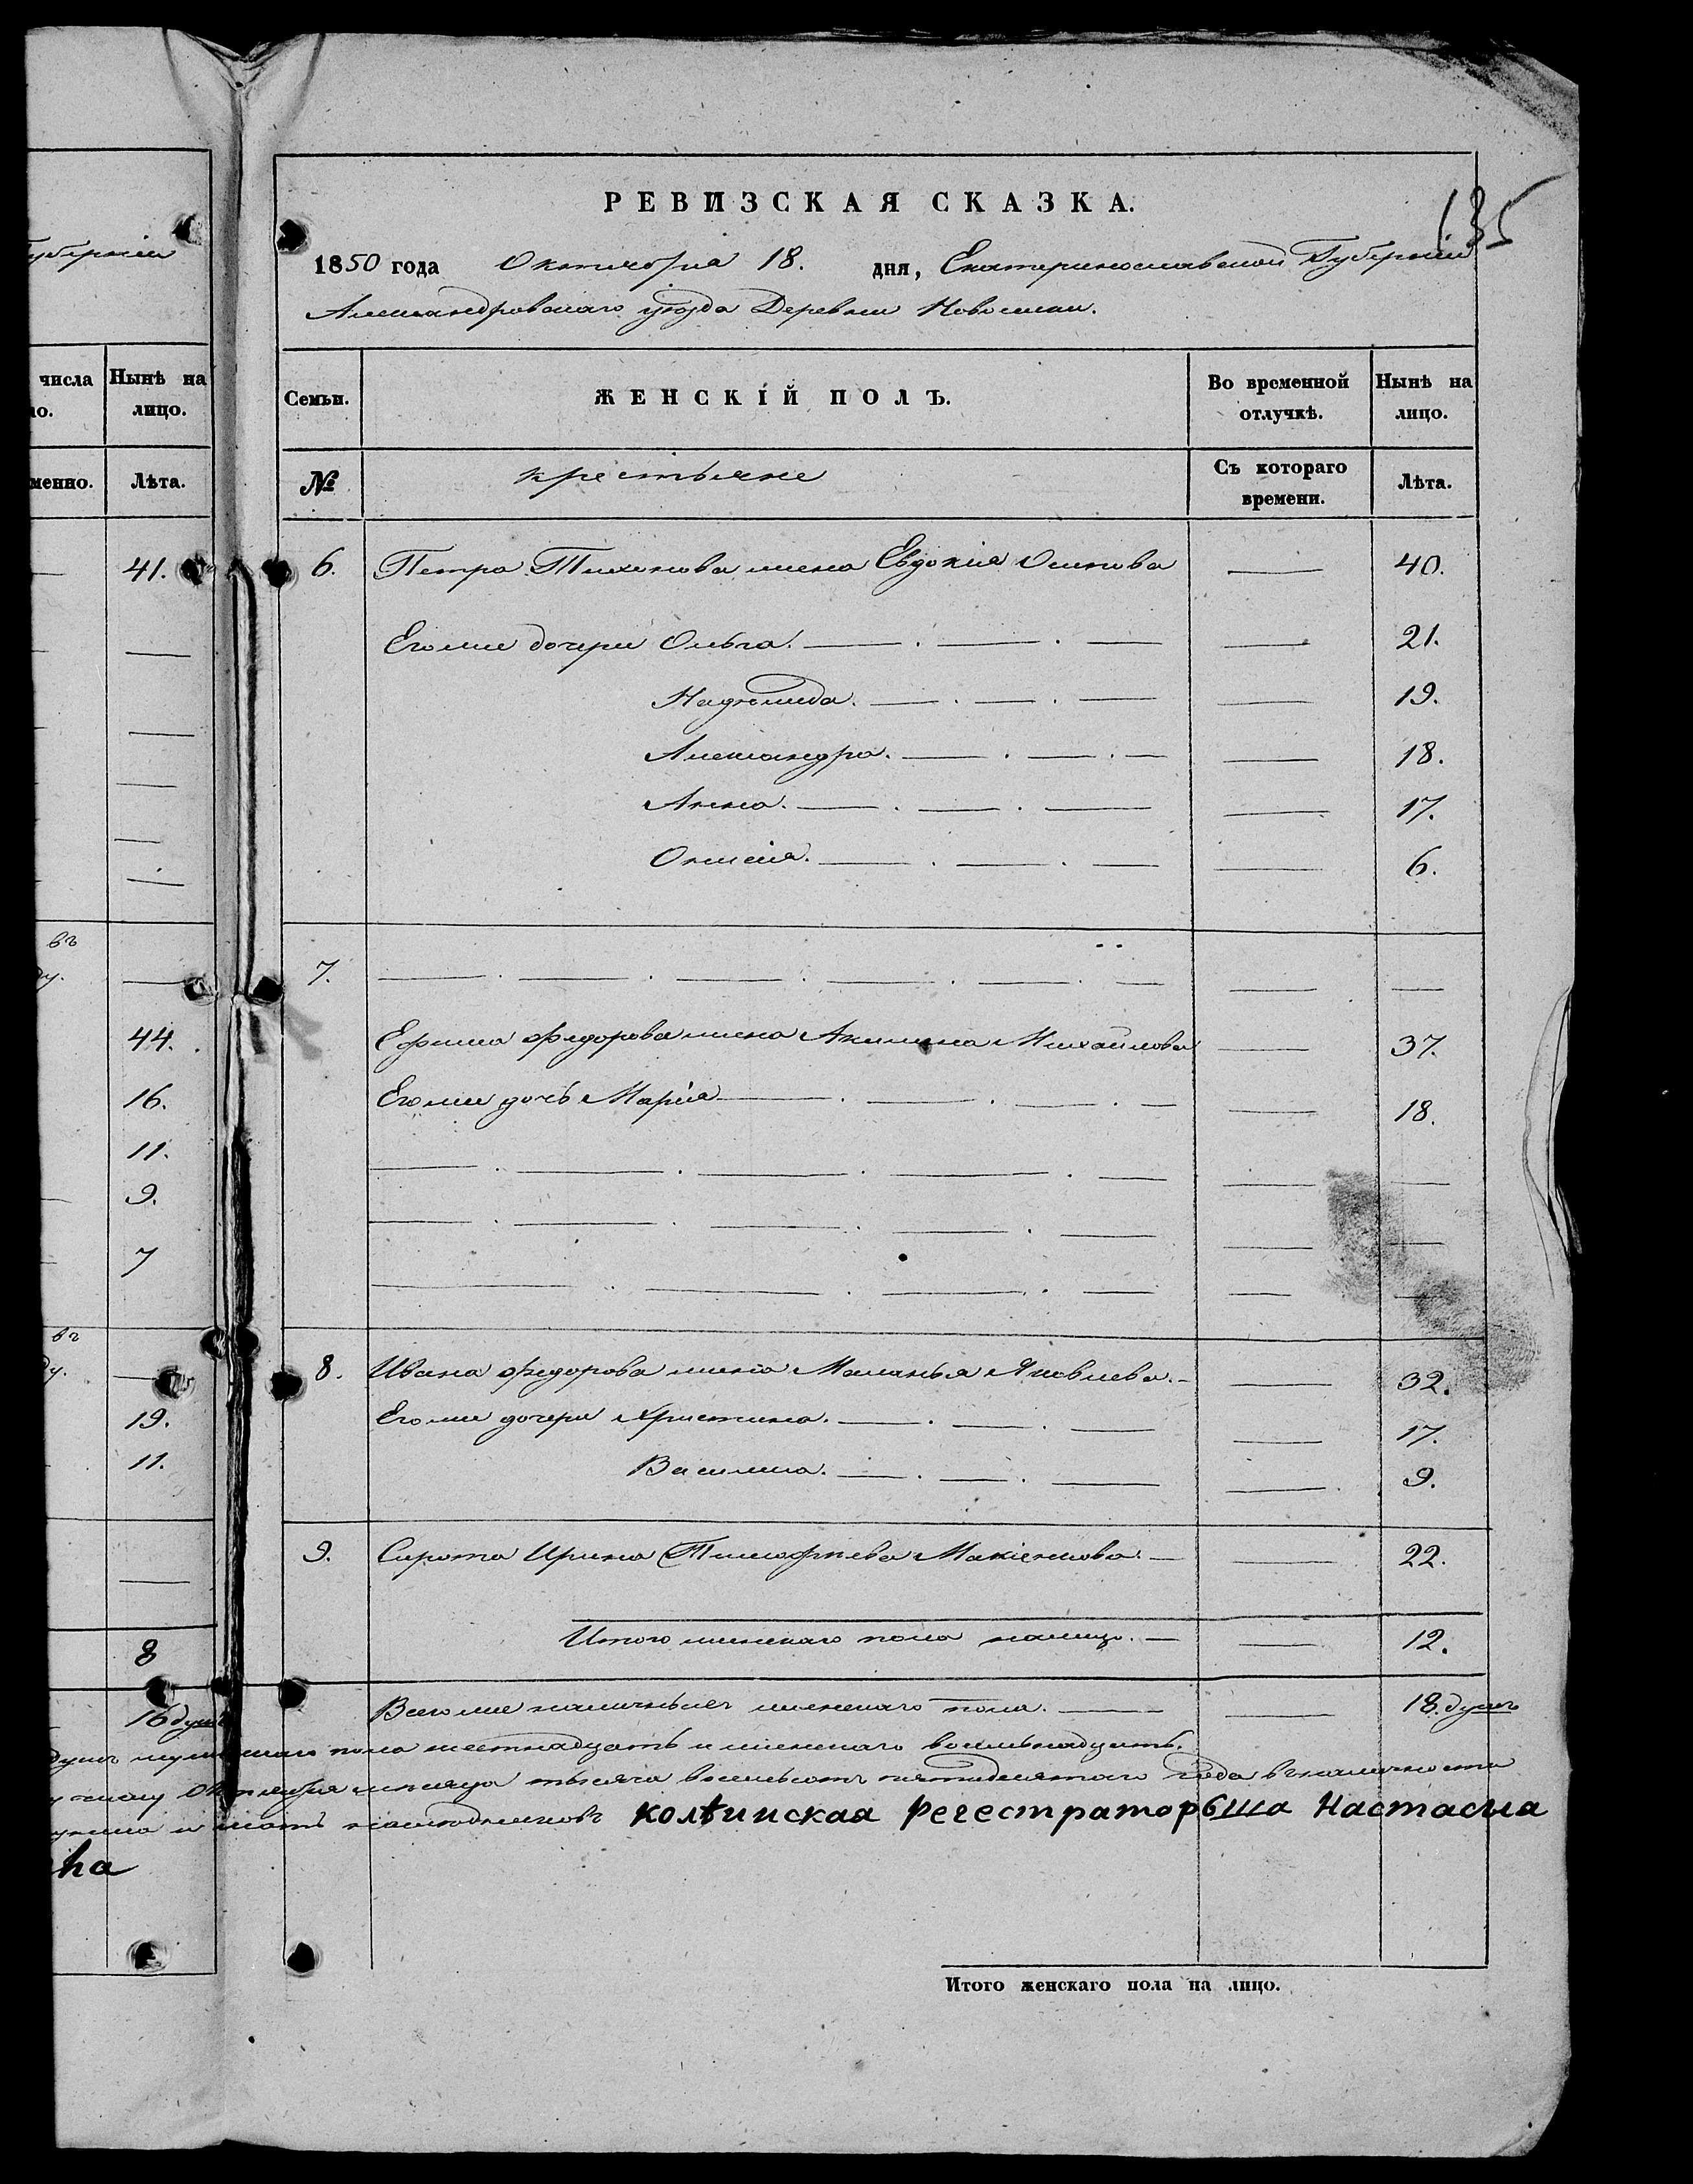 135
РЕВИЗСКАЯ СКАЗКА.
1850 года Октября 18. дня, Екатеринославской Губерніи
Александровскаго уѣзда Деревни
Губерніи
числа Нынѣ на лицо.
Лѣта.
Семьи. ЖЕНСКІЙ ПОЛЪ. Во временной отлучкѣ. Нынѣ на лицо.
№ крестьяне Съ котораго времени. Лѣта.
41.
6. Петра Тихонова жена Евдокия Осипова — 40.
Его же дочери Ольга. — 21.
— 19.
Александра. — 18.
Анна. — 17.
— 6.
въ
7. —
44.
Ефима Федорова жена Акилина Михайлова — 37.
16.
Его же дочь Марія — 18.
11.
9.
7
въ
8. Ивана Федорова жена Маланья Яковлева. — 32.
19.
Его же дочери Христина. — 17.
11.
Василиса. — 9.
9. Сирота Ирина Тимофѣева — 22.
8
Итого женскаго пола налицо. — 12.
16 душъ
Всего же наличныхъ женскаго пола. — 18. душъ
душъ мужескаго пола шестнадцать и женскаго восемьнадцать.
числу Октября мѣсяца тысяча восемьсотъ пятидесятаго года въ наличности
и мать колѣпская регестраторьша Настасиа
на
Итого женскаго пола на лицо.